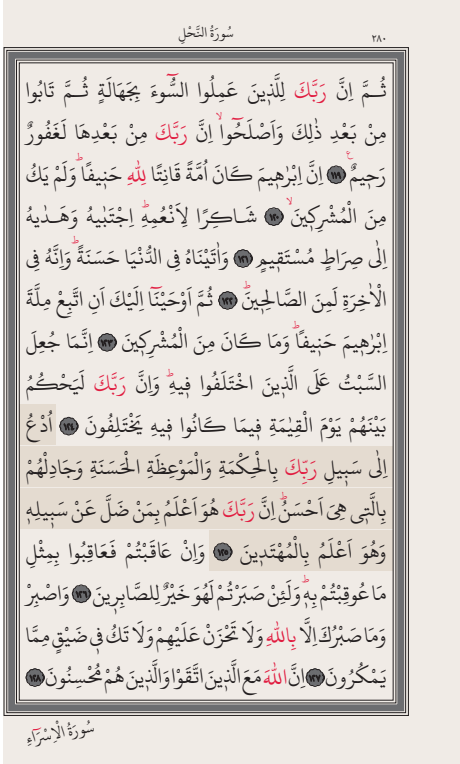 سُورَةُ النَّحْلِ
٢٨٠
ثُمَّ اِنَّ رَبَّكَ لِلَّذٖينَ عَمِلُوا السُّٓوءَ بِجَهَالَةٍ ثُمَّ تَابُوا
مِنْ بَعْدِ ذٰلِكَ وَاَصْلَحُٓواۙ اِنَّ رَبَّكَ مِنْ بَعْدِهَا لَغَفُورٌ
رَحٖيمٌࣖ ﴿١١٩﴾ اِنَّ اِبْرٰهٖيمَ كَانَ اُمَّةً قَانِتًا لِلّٰهِ حَنٖيفًاؕ وَلَمْ يَكُ
مِنَ الْمُشْرِكٖينَۙ ﴿١٢٠﴾ شَاكِرًا لِاَنْعُمِهٖؕ اِجْتَبٰيهُ وَهَدٰيهُ
اِلٰى صِرَاطٍ مُسْتَقٖيمٍ ﴿١٢١﴾ وَاٰتَيْنَاهُ فِى الدُّنْيَا حَسَنَةًؕ وَاِنَّهُ فِى
الْاٰخِرَةِ لَمِنَ الصَّالِحٖينَؕ ﴿١٢٢﴾ ثُمَّ اَوْحَيْنَٓا اِلَيْكَ اَنِ اتَّبِعْ مِلَّةَ
اِبْرٰهٖيمَ حَنٖيفًاؕ وَمَا كَانَ مِنَ الْمُشْرِكٖينَ ﴿١٢٣﴾ اِنَّمَا جُعِلَ
السَّبْتُ عَلَى الَّذٖينَ اخْتَلَفُوا فٖيهِؕ وَاِنَّ رَبَّكَ لَيَحْكُمُ
بَيْنَهُمْ يَوْمَ الْقِيٰمَةِ فٖيمَا كَانُوا فٖيهِ يَخْتَلِفُونَ ﴿١٢٤﴾ اُدْعُ
اِلٰى سَبٖيلِ رَبِّكَ بِالْحِكْمَةِ وَالْمَوْعِظَةِ الْحَسَنَةِ وَجَادِلْهُمْ
بِالَّتٖى هِىَ اَحْسَنُؕ اِنَّ رَبَّكَ هُوَ اَعْلَمُ بِمَنْ ضَلَّ عَنْ سَبٖيلِهٖ
وَهُوَ اَعْلَمُ بِالْمُهْتَدٖينَ ﴿١٢٥﴾ وَاِنْ عَاقَبْتُمْ فَعَاقِبُوا بِمِثْلِ
مَا عُوقِبْتُمْ بِهٖؕ وَلَئِنْ صَبَرْتُمْ لَهُوَ خَيْرٌ لِلصَّابِرٖينَ ﴿١٢٦﴾ وَاصْبِرْ
وَمَا صَبْرُكَ اِلَّا بِاللّٰهِ وَلَا تَحْزَنْ عَلَيْهِمْ وَلَا تَكُ فٖى ضَيْقٍ مِمَّا
يَمْكُرُونَ ﴿١٢٧﴾ اِنَّ اللّٰهَ مَعَ الَّذٖينَ اتَّقَوْا وَالَّذٖينَ هُمْ مُحْسِنُونَ ﴿١٢٨﴾
سُورَةُ الْاِسْرَٓاءِ